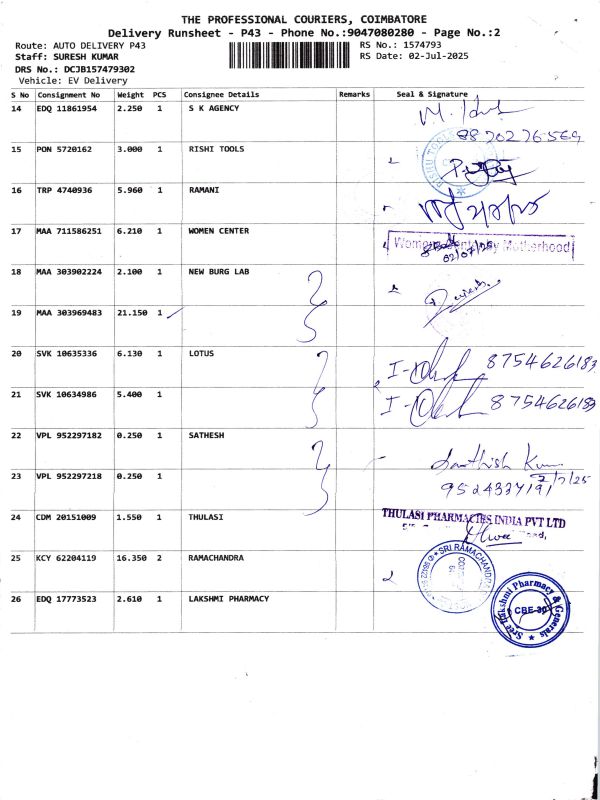 THE PROFESSIONAL COURIERS, COIMBATORE
Delivery Runsheet - P43 - Phone No.:9047080280 - Page No.:2
Route: AUTO DELIVERY P43
RS No.: 1574793
Staff: SURESH KUMAR
RS Date: 02-Jul-2025
DRS No.: DCJB157479302
Vehicle: EV Delivery
S No Consignment No Weight PCS Consignee Details Remarks Seal & Signature
14 EDQ 11861954 2.250 1 S K AGENCY
88 70276569
15 PON 5720162 3.000 1 RISHI TOOLS
16 TRP 4740936 5.960 1 RAMANI
17 MAA 711586251 6.210 1 WOMEN CENTER
Motherhood
02/07/25
18 MAA 303902224 2.100 1 NEW BURG LAB
19 MAA 303969483 21.150 1
20 SVK 10635336 6.130 1 LOTUS 8754626183
21 SVK 10634986 5.400 1 8754626183
22 VPL 952297182 0.250 1 SATHESH
Santhish Kum
2/7/25
23 VPL 952297218 0.250 1 9524337191
24 CDM 20151009 1.550 1 THULASI THULASI PHARMACIES INDIA PVT LTD
25 KCY 62204119 16.350 2 RAMACHANDRA
SRI RAMACHANDRA
26 EDQ 17773523 2.610 1 LAKSHMI PHARMACY
Sree Lakshmi Pharmacy & Generals
CBE-30